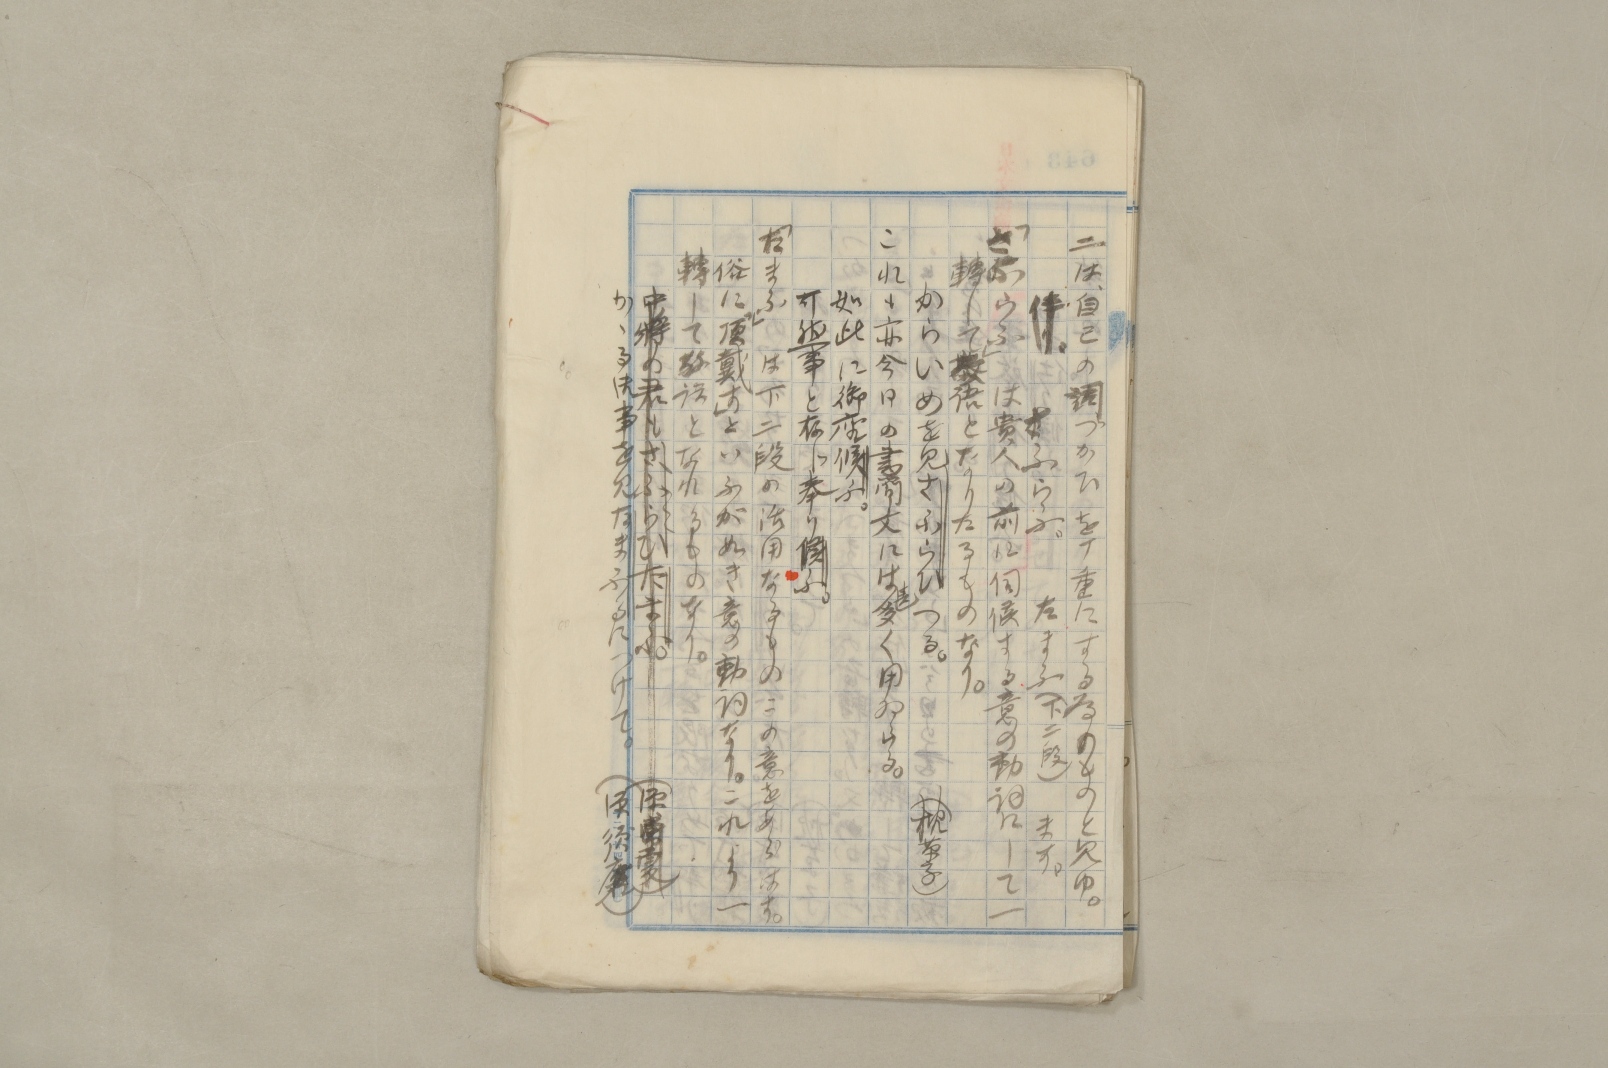 二は、自己の詞づかひを丁重にする為のものと見ゆ。
侍り。 さふらふ。 たまふ(下二段) ます。
「さふらふ」は貴人の前に伺候する意の動詞にして一
轉して敬語となりたるものなり。
からいめを見さふらひつる。 (枕草子)
これも亦今日の書簡文には多く用ゐらる。
如此に御座候ふ。
可然事と存じ奉り候ふ。
「たまふ」のは下二段の活用なるものこの意をあらはす。
俗に「頂戴す」といふが如き意の動詞なり。これより一
轉して敬語となれるものなり。
中將の君もさふらひたまふ。
かゝる法事を見たまふるにつけて。 (源、須磨)